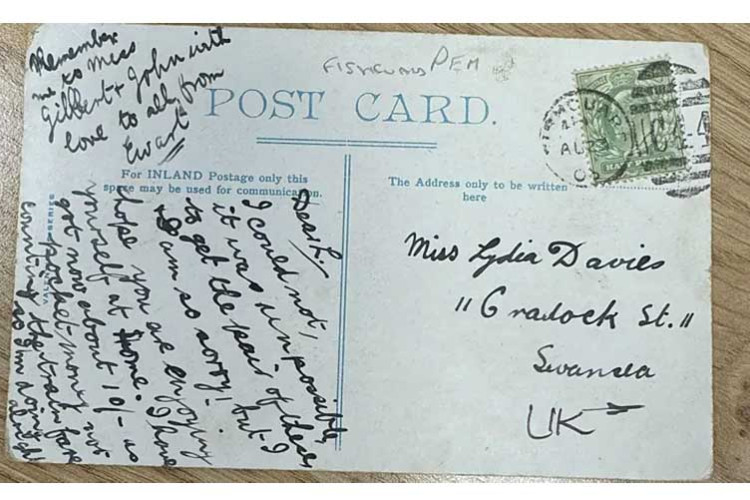 Remember
me to Miss
Gilbert + John with
love to all from
Ewart
FISHGUARD PEM
POST CARD.
For INLAND Postage only this
space may be used for communication.
The Address only to be written
here
AU 23
Dear L,
I could not,
it was impossible,
to get the pair of these
+ I am so sorry! but I
hope you are enjoying
yourself at home. I have
got now about 10/- as
pocket money not
counting the train fare
so I'm doing
alright
SERIES
Miss Lydia Davies
11 Cradock St.
Swansea
UK